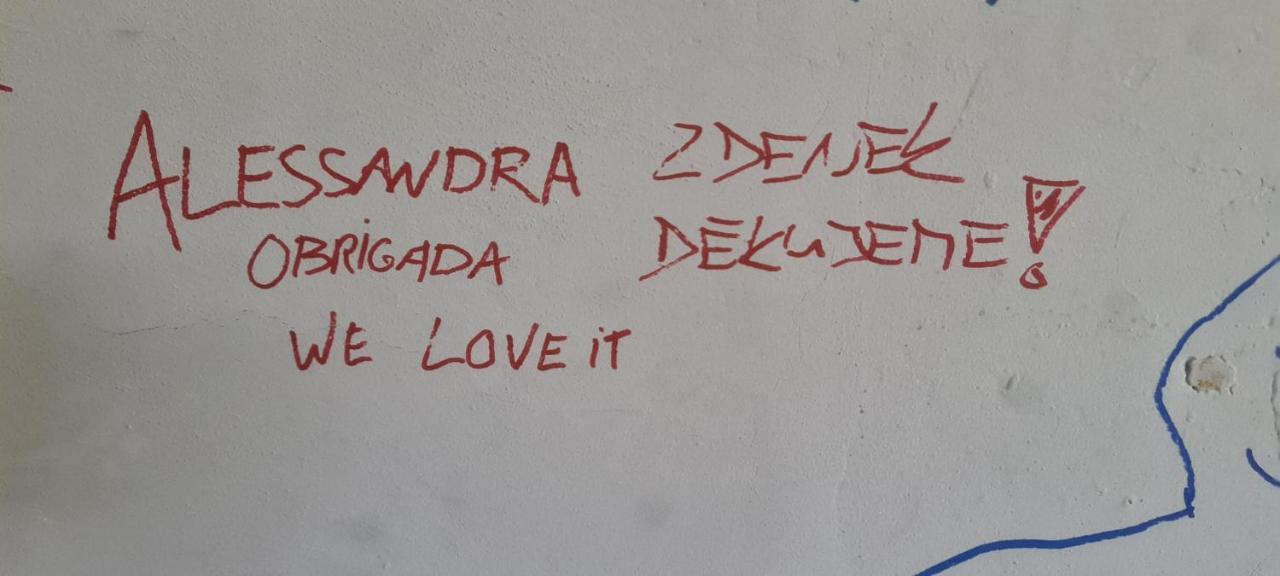 ALESSANDRA ZDENEK
OBRIGADA DEKUJEME!
WE LOVE iT